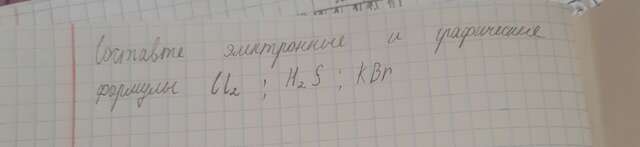 Составте электронные и графические
формулы Cl₂ ; H₂S ; KBr